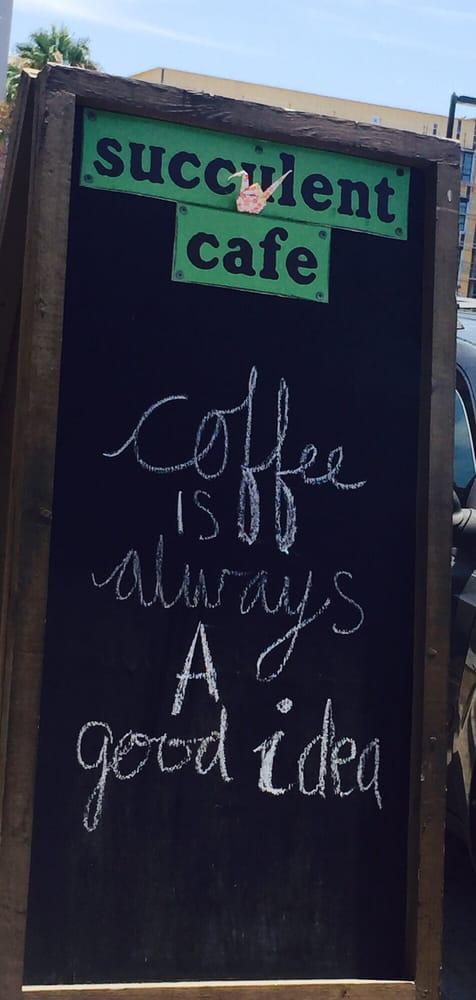 succulent
cafe
coffee
is
always
A
good idea